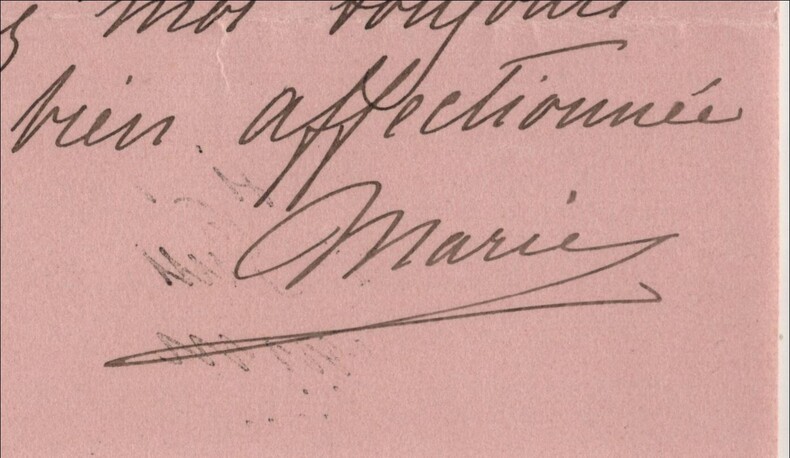 moi toujours
bien affectionnée
Marie